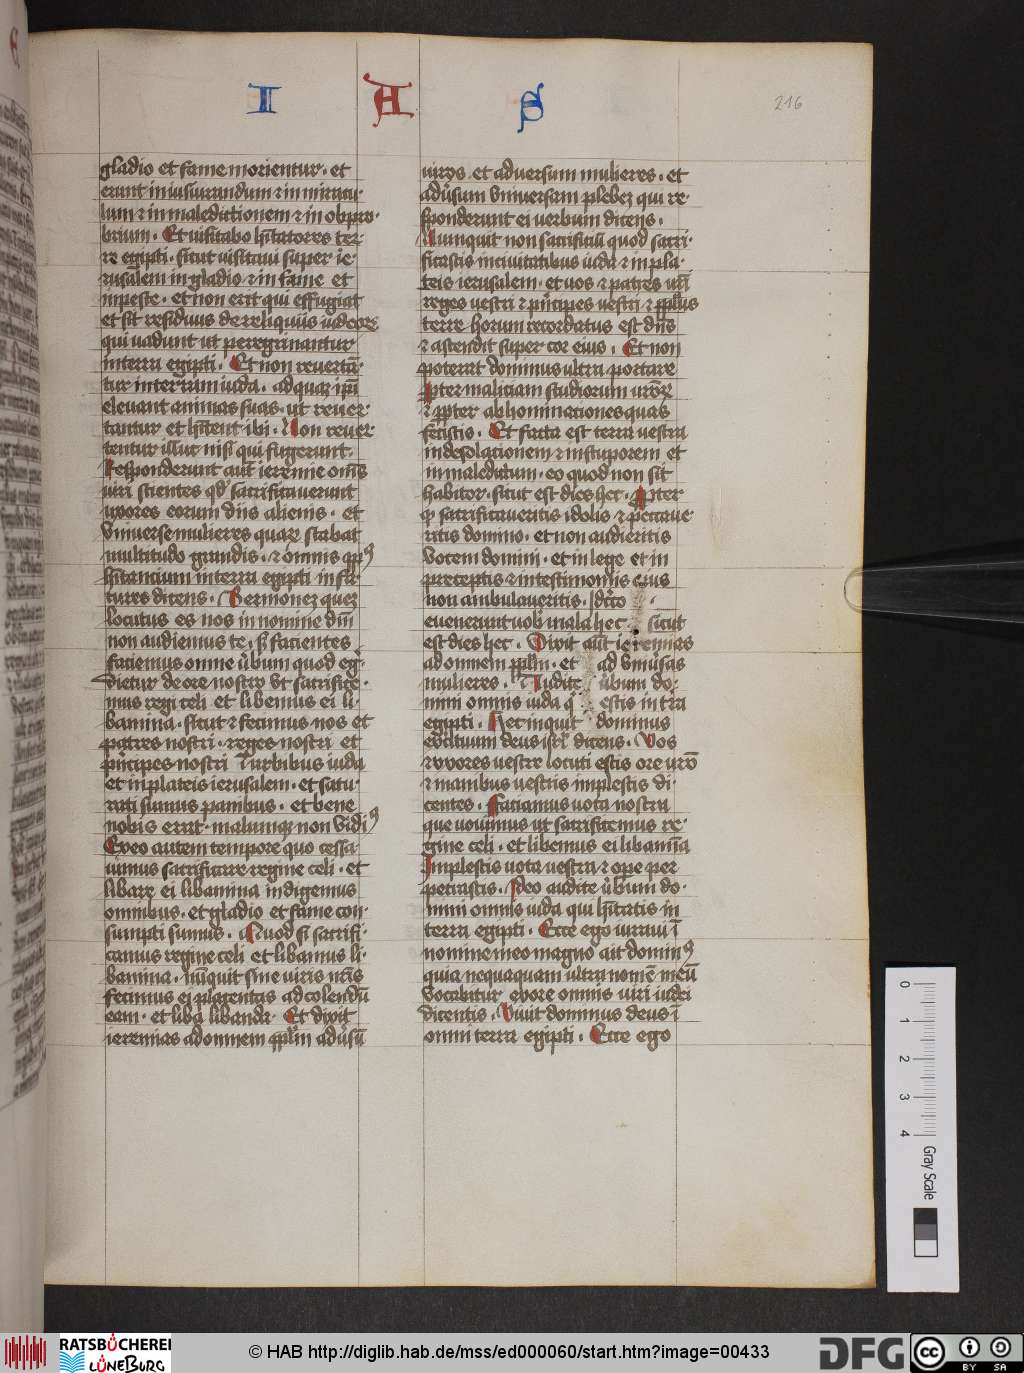 I A S
216
gladio et fame morientur · et
erunt in iusiurandum ⁊ in miracu-
lum ⁊ in maledictionem ⁊ in obpro-
brium · Et visitabo hītatores ter-
re egipti · sicut visitaui super ie-
rusalem in gladio ⁊ in fame et
in peste · et non erit qui effugiat
et sit residuus de reliquiis iudeorꝫ
qui vadunt ut peregrinantur
in terra egipti · Et non reuertā-
tur in terram iuda · ad quaꝫ ip̄i
eleuant animas suas · ut reuer-
tantur et hītent ibi · Non reuer-
tentur illuc nisi qui fugerunt ·
Responderunt aut̄ ieremie om̄s
viri scientes qd̄ sacrificauerunt
vxores eorum diis alienis · et
vniuerse mulieres quaꝝ stabat
multitudo grandis · ⁊ omnis pp̄ls
hītancium in terra egipti in fa-
tures dicens · Sermoneꝫ queꝫ
locutus es nos in nomine dn̄i
non audiemus te · sꝫ facientes
faciemus omne v̄bum quod eḡ-
dietur de ore nostro vt sacrifice-
mus regi celi et libemus ei li-
bamina · sicut ⁊ fecimus nos et
patres nostri · reges nostri et
pͥncipes nostri ī urbibus iuda
et in plateis ierusalem · et satu-
rati sumus panibus · et bene
nobis erat · malumqꝫ non vidiꝰ
Ex eo autem tempore quo cessa-
uimus sacrificare regine celi · et
libare ei libamina indigemus
omnibus · et gladio et fame con-
sumpti sumus · Quod si sacrifi-
camus regine celi et libamus li-
bamina · nūquit sine viris nr̄is
fecimus ei placentas ad colendū
eam · et liba libanda · Et dixit
ieremias ad omnem pp̄lm adūsū
viros et adversum mulieres · et
adūsum vniuersam plebeꝫ qui re-
sponderunt ei verbum dicens ·
Nunquit non sacrificiū quod sacri-
ficastis in ciuitatibus iuda ⁊ in pla-
teis ierusalem · et uos ⁊ patres ur̄i
reges vestri ⁊ pͥncipes vestri ⁊ pp̄lus
terre horum recordatus est dn̄s
⁊ ascendit super cor eius · Et non
poterat dominus ultra portare
ꝓpter maliciam studiorum ur̄orꝝ
⁊ ꝓpter abhominationes quas
fecistis · Et facta est terra vestra
in desolacionem ⁊ in stuporem et
in maledictum · eo quod non sit
habitor · sicut est dies hec · Ꝓpter
qꝫ sacrificaueritis idolis ⁊ peccaue-
ritis domino · et non audieritis
vocem domini · et in lege et in
preceptis ⁊ in testimoniis eius
non ambulaueritis · Idc̄o
euenerunt uob̄ mala hec · sicut
est dies hec · Dixit aut̄ ieremias
ad omnem pp̄lm · et ad vniūsas
mulieres · Audite v̄bum do-
mini omnis iuda qͥ estis in tr̄a
egipti · Hec inquit dominus
exercituum deus isr̄l dicens · Vos
⁊ vxores vestre locuti estis ore ur̄o
⁊ manibus vestris implestis di-
centes · Faciamus uota nostra
que vouimus ut sacrificemus re-
gine celi · et libemus ei libamīa
Implestis uota vestra ⁊ ope per-
petrastis · Ideo audite v̄bum do-
mini omnis iuda qui hītatis in
terra egipti · Ecce ego iuraui ī
nomine meo magno ait dominꝰ
quia nequaquam ultra nomē meū
vocabitur ex ore omnis uiri iudei
dicentis · Viuit dominus deus ī
omni terra egipti · Ecce ego
0 1 2 3 4
Gray Scale
RATSBÜCHEREI
LÜNEBURG
© HAB http://diglib.hab.de/mss/ed000060/start.htm?image=00433
DFG
cc BY SA